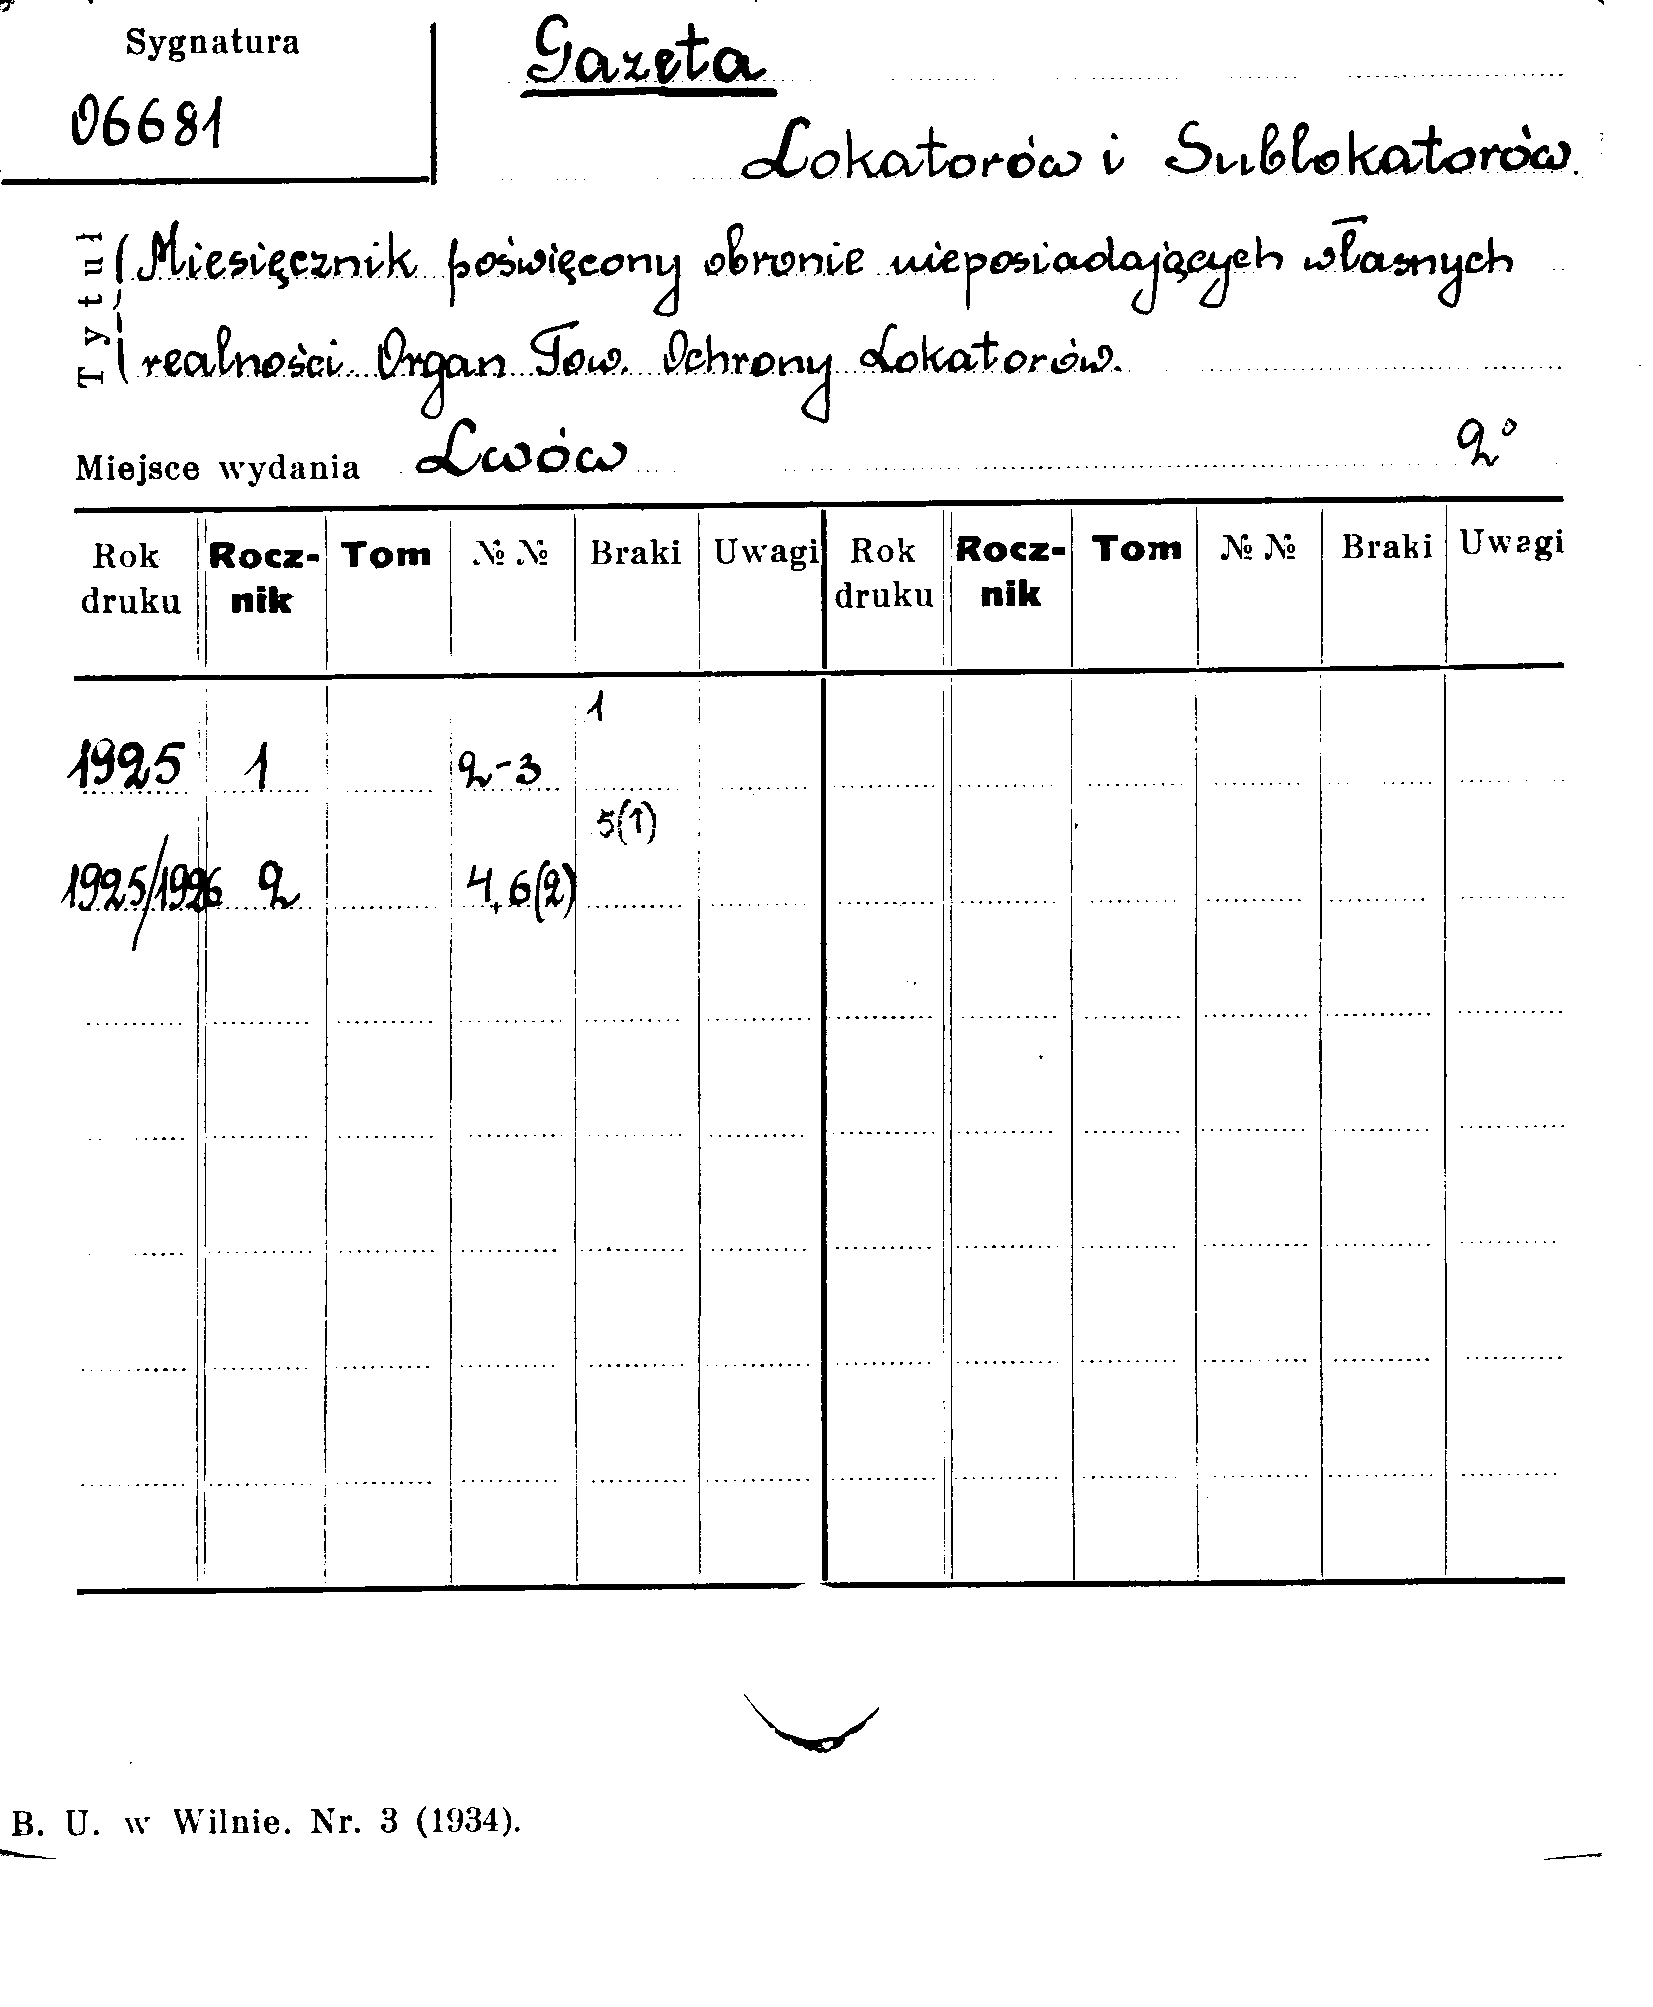 Sygnatura
06681
Gazeta
Lokatorów i Sublokatorów.
Tytuł
(Miesięcznik poświęcony obronie nieposiadających własnych
realności. Organ Tow. Ochrony Lokatorów.
Miejsce wydania Lwów 2°
Rok druku Rocz-nik Tom №№ Braki Uwagi Rok druku Rocz-nik Tom №№ Braki Uwagi
1
1925 1 2-3
5(1)
1925/1926 2 4,6(2)
B. U. w Wilnie. Nr. 3 (1934).